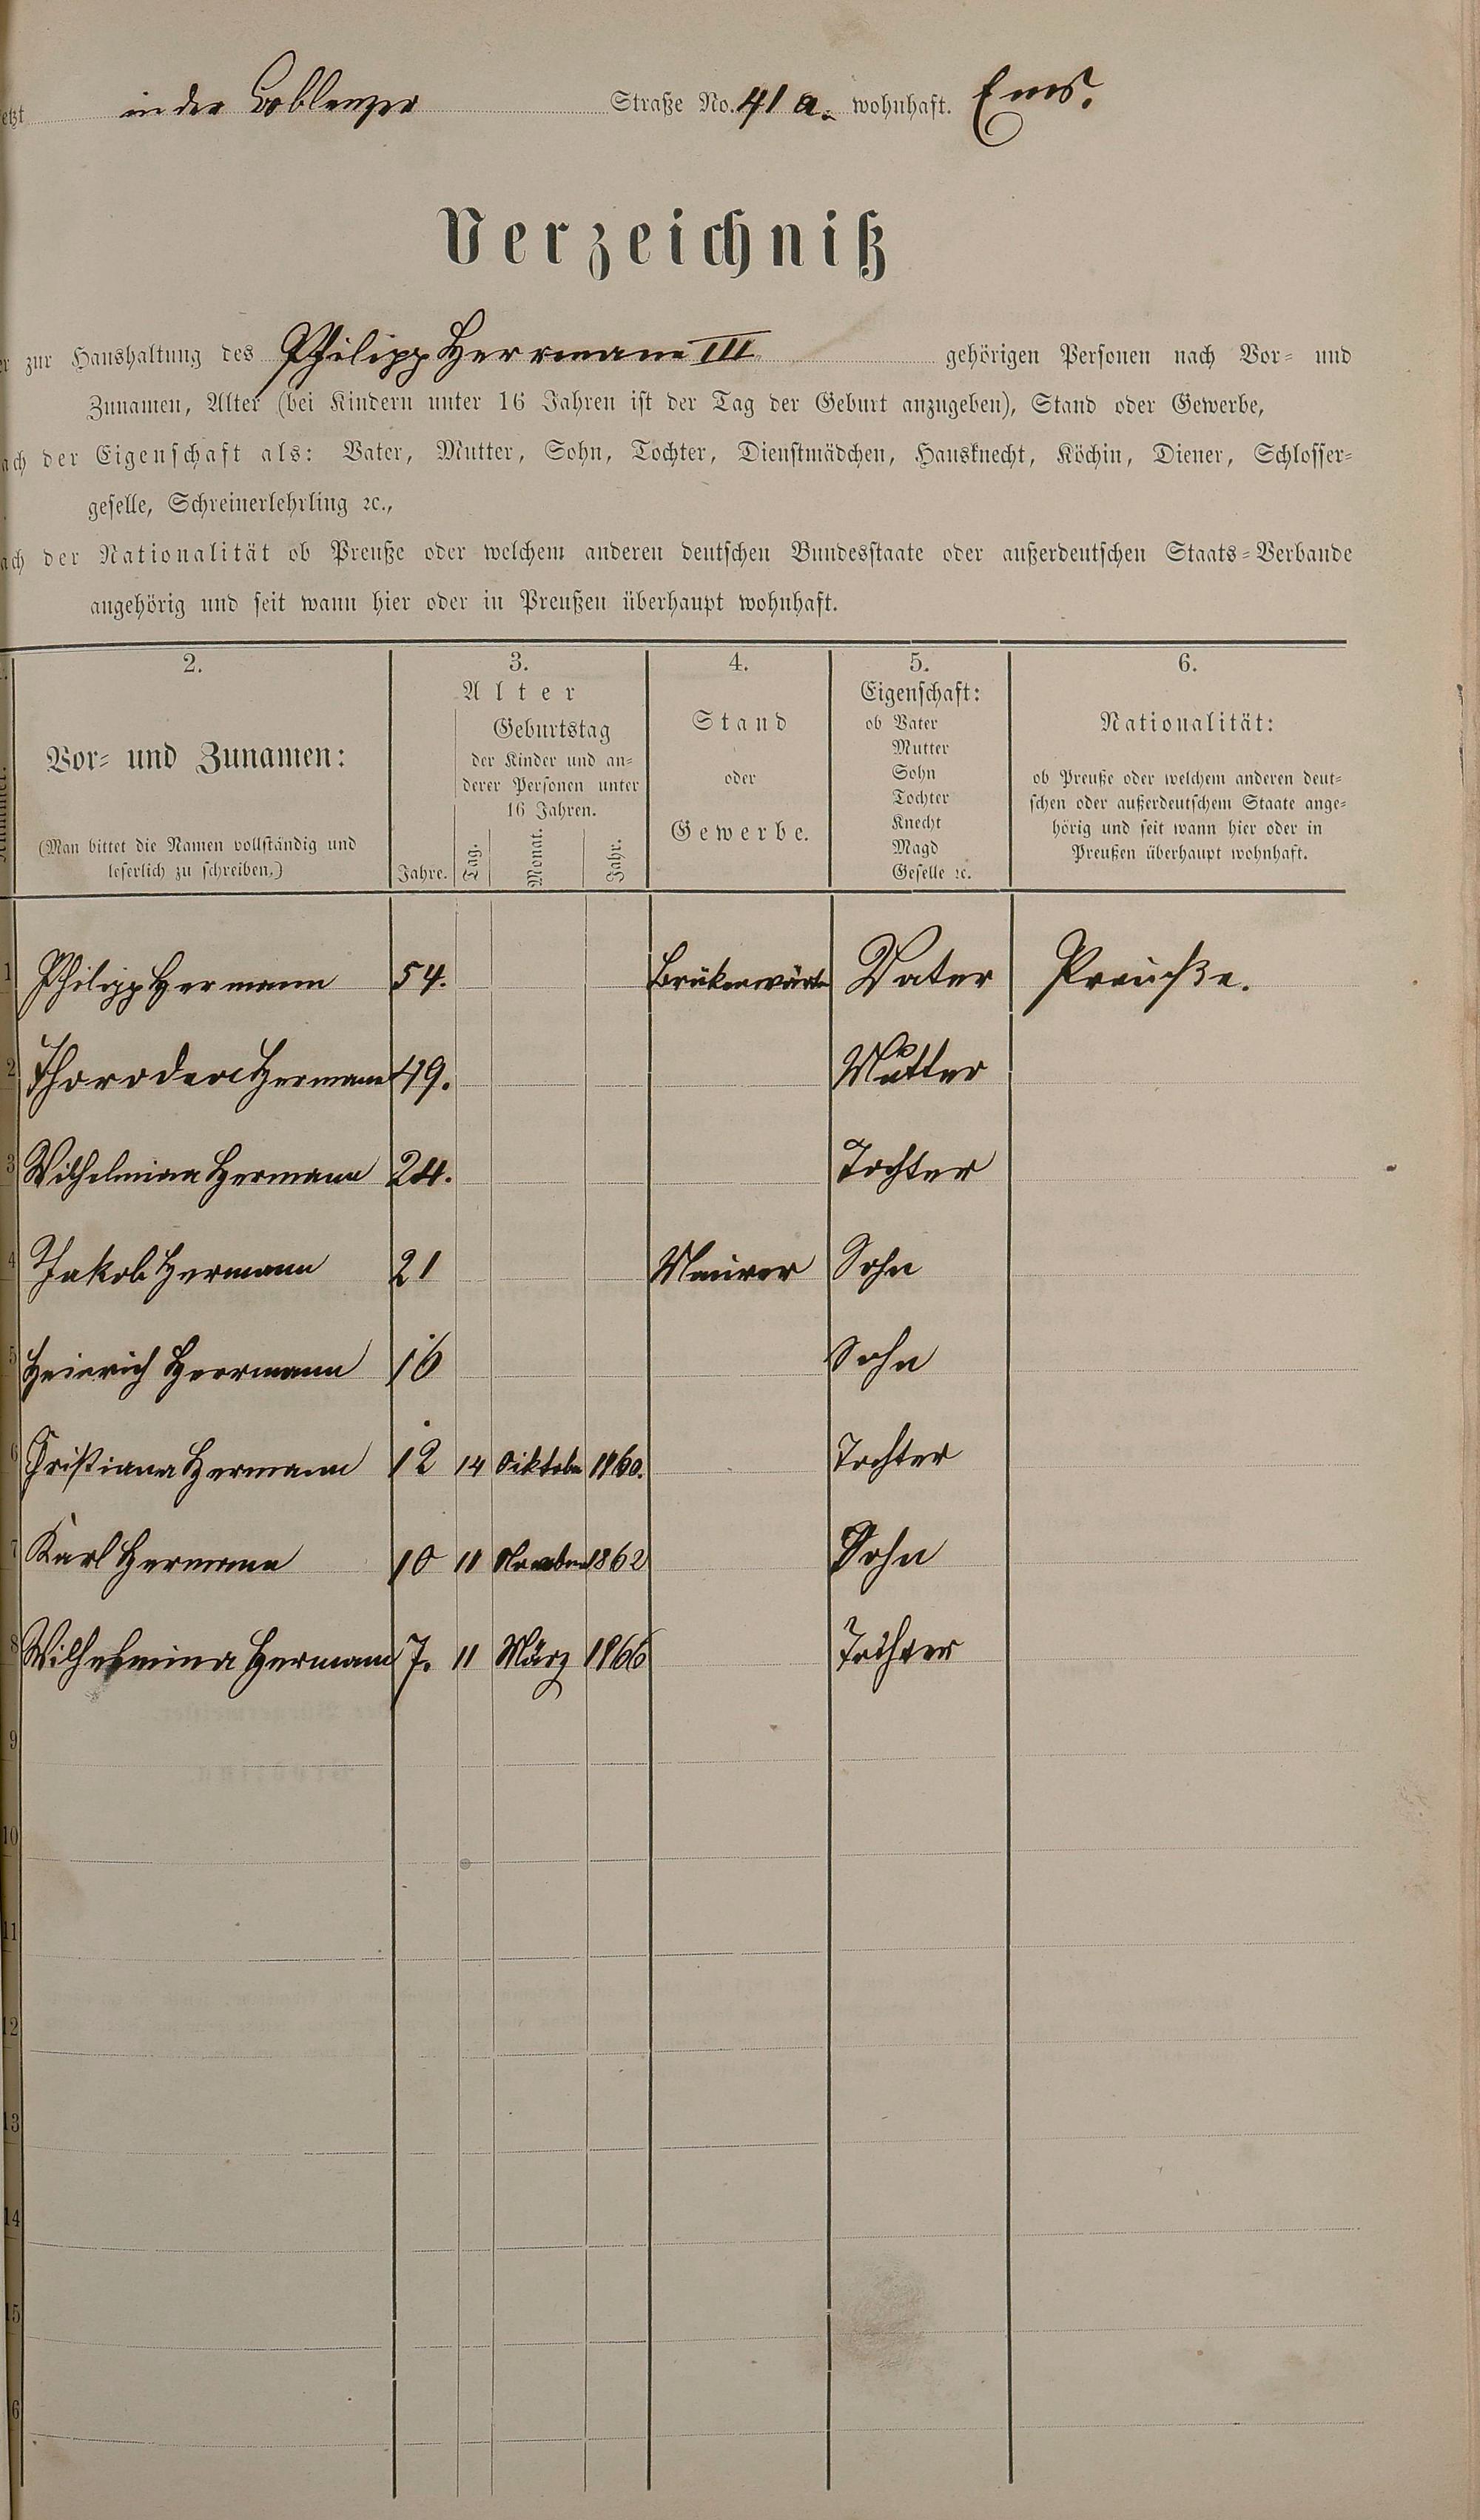 etzt in der Coblenzer Straße No. 41 a. wohnhaft. Ems.
Verzeichniß
er zur Haushaltung des Philipp Herrmann III gehörigen Personen nach Vor- und
Zunamen, Alter (bei Kindern unter 16 Jahren ist der Tag der Geburt anzugeben), Stand oder Gewerbe,
ach der Eigenschaft als: Vater, Mutter, Sohn, Tochter, Dienstmädchen, Hausknecht, Köchin, Diener, Schlosser-
geselle, Schreinerlehrling ꝛc.,
ach der Nationalität ob Preuße oder welchem anderen deutschen Bundesstaate oder außerdeutschen Staats-Verbande
angehörig und seit wann hier oder in Preußen überhaupt wohnhaft.
2.
Vor- und Zunamen:
(Man bittet die Namen vollständig und
leserlich zu schreiben.)
3.
Alter
Geburtstag
der Kinder und an-
derer Personen unter
16 Jahren.
Jahre. Tag. Monat. Jahr.
4.
Stand
oder
Gewerbe.
5.
Eigenschaft:
ob Vater
Mutter
Sohn
Tochter
Knecht
Magd
Geselle ꝛc.
6.
Nationalität:
ob Preuße oder welchem anderen deut-
schen oder außerdeutschem Staate ange-
hörig und seit wann hier oder in
Preußen überhaupt wohnhaft.
1 Philipp Hermann 54. Brükenwärter Vater Preuße.
2 Hermann 49. Mutter
3 Wilhelmina Hermann 24. Tochter
4 Jakob Hermann 21 Maurer Sohn
5 Heinrich Herrmann 16 Sohn
6 Cristiana Hermann 12 14 Oiktober 1860. Tochter
7 Karl Hermann 10 11 1862 Sohn
8 Wilhelmina Hermann 7. 11 März 1866 Tochter
9
10
11
12
13
14
15
6